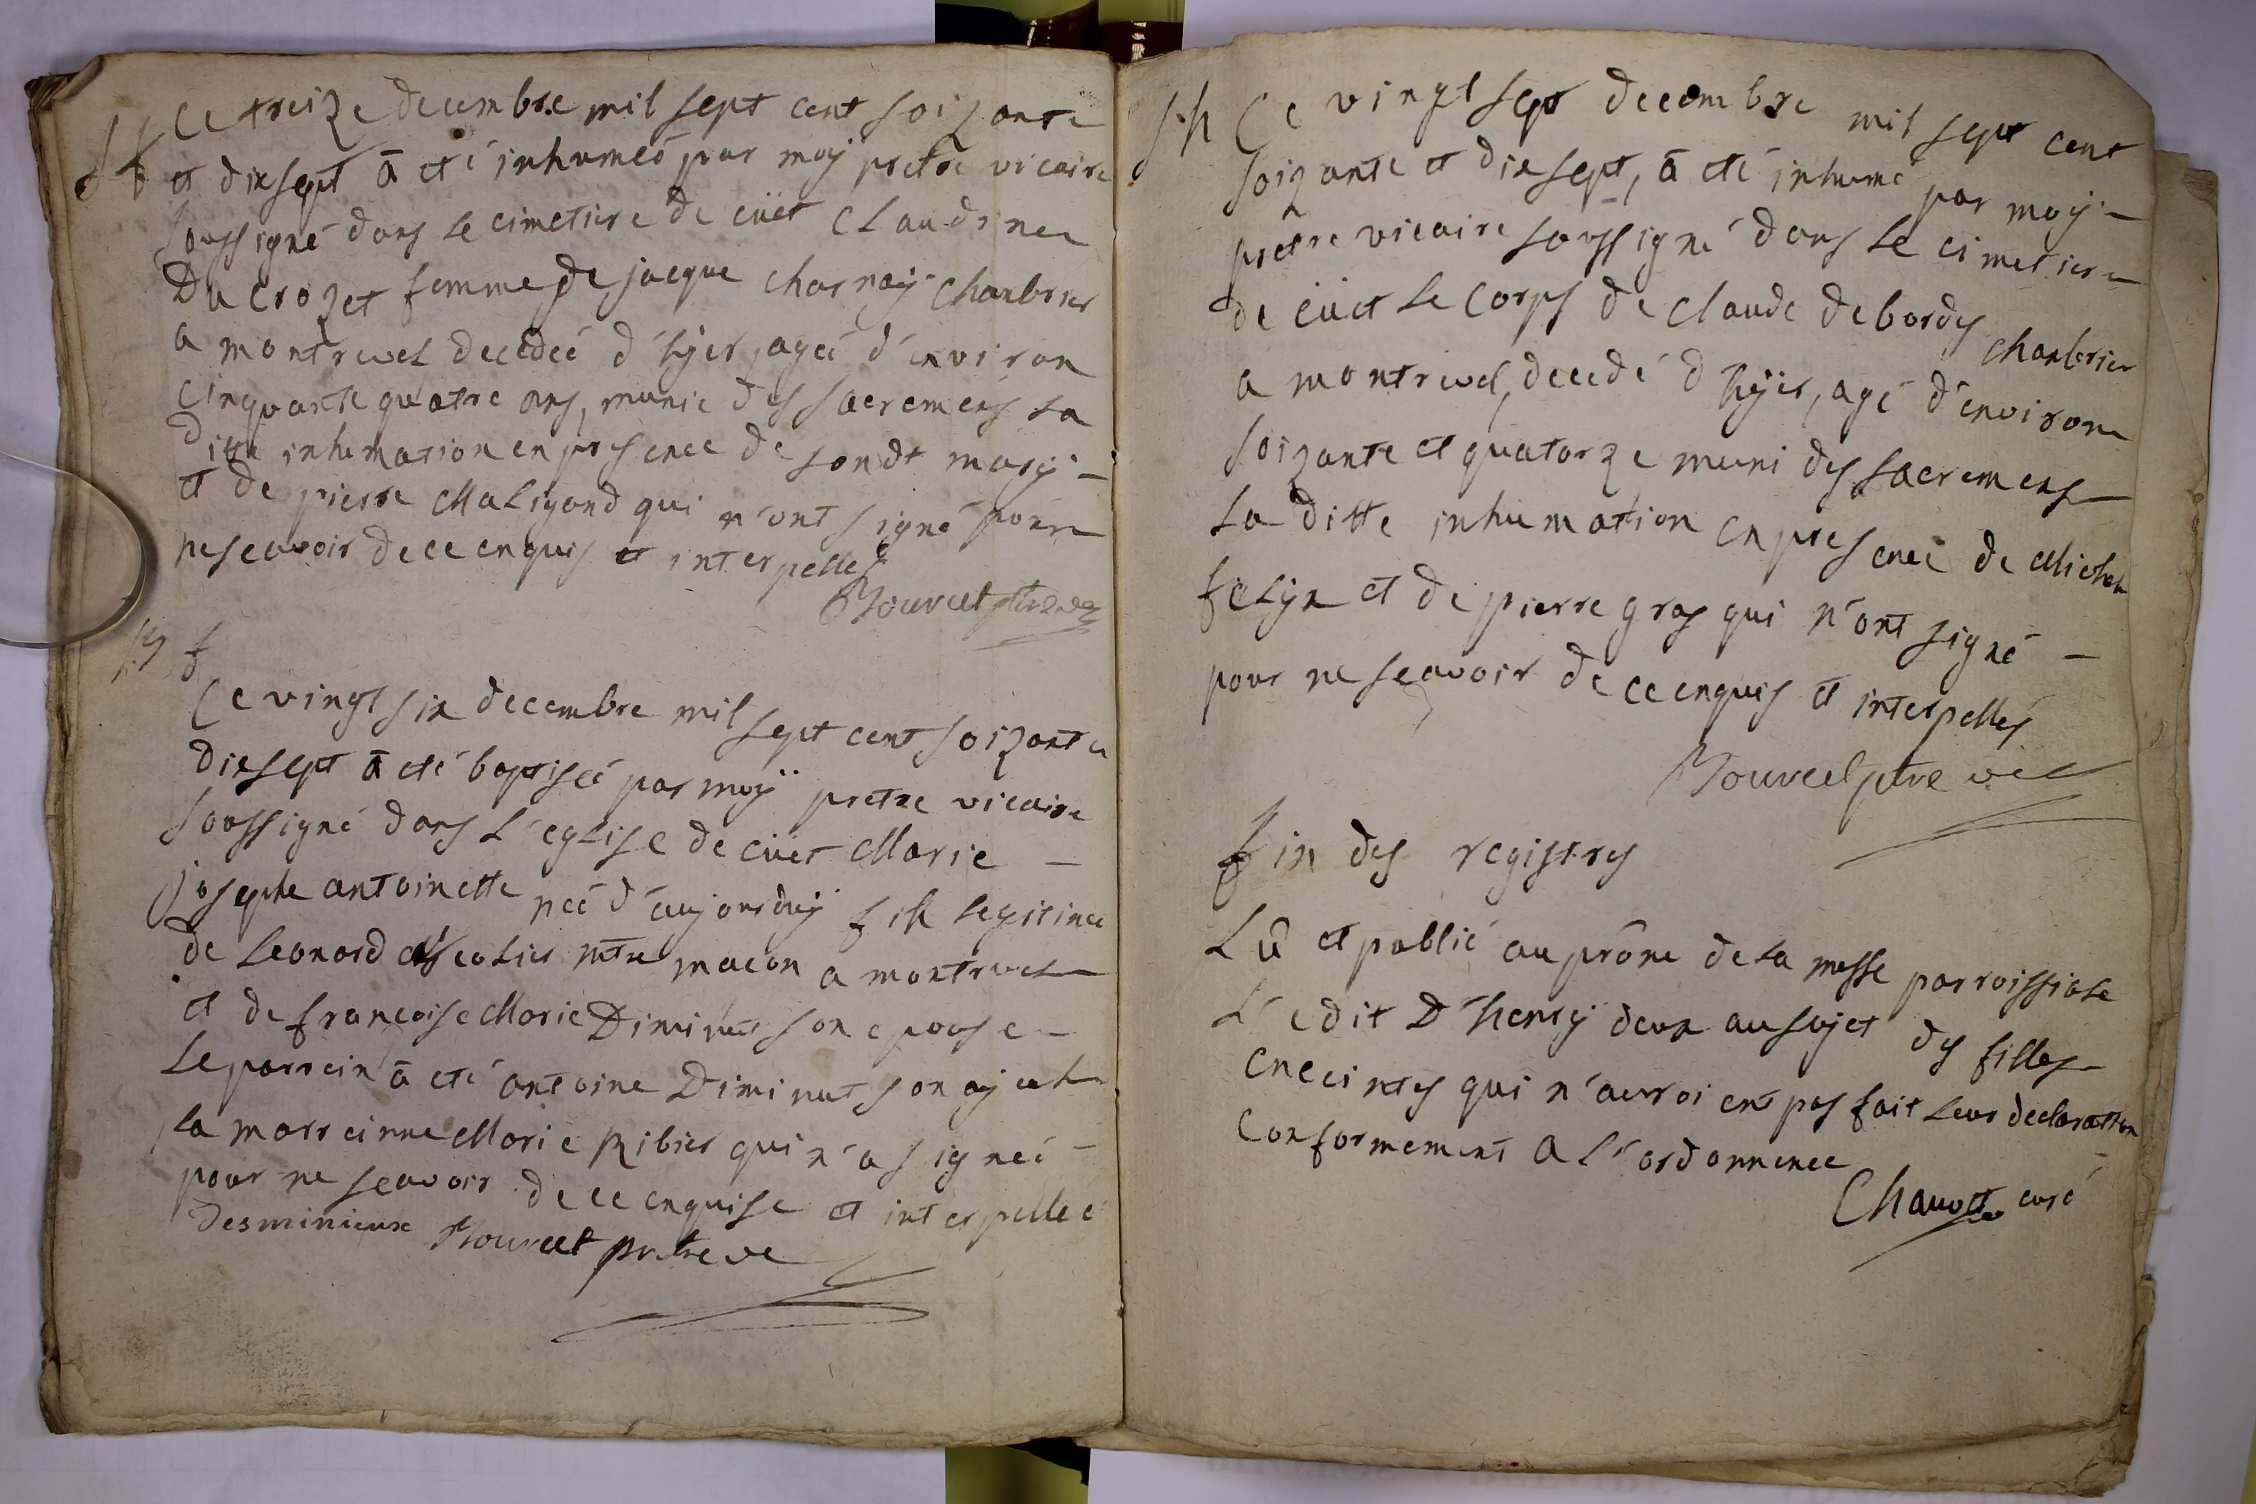 S f Ce treize decembre mil sept cent soizante
et dixsept ā eté inhumeé par moÿ pretre vicaire
soussigné dans le cimetiere de cüet Claudinne
Ducrozet femme de jacque charnaÿ Chanbrier
a montrevel decedeé d'hÿer, ageé d'environ
cinquante quatre ans, munie des sacremens La
ditte inhumation en presence de son dt marÿ -
et de pierre Maligand qui n'ont signé pour
ne scavoir de ce enquis et interpellés
Bourcet ptre
B f
Ce vingt six decembre mil sept cent soizante
dixsept ā eté baptiseé par moÿ pretre vicaire
soussigné dans L'eglise de cüet Marie -
josephe antoinette neé d'aujourduÿ fille legitime
de Leonard mtre macon a montrevel
et de francoise Marie Diminut son epouse -
Le parrein ā eté antoine Diminut son ajeul
La marreinne Marie Ribier qui n'a signeé -
pour ne scavoir de ce enquise et interpelleé
desminieux Bourcet pretre vic
S. h Ce vingt sept decembre mil sept cent
soizante et dixsept, ā eté inhumé par moÿ -
pretre vicaire soussigné dans le cimetiere
de cüet le corps de claude debordes chanbrier
a montrevel, decedé d'hÿer, agé d'environ
soizante et quatorze muni des sacremens
La ditte inhumation en presence de Michel
felÿx et de pierre gras qui n'ont signé -
pour ne scavoir de ce enquis et interpellés
Bourcet ptre vic
fin des registres
Lû et publié au prône de La messe parroissiale
L'edit D'henrÿ deux au sujet des filles
enceintes qui n'auroient pas fait Leur declaration
Conformement a L'ordonnence -
Chavot curé